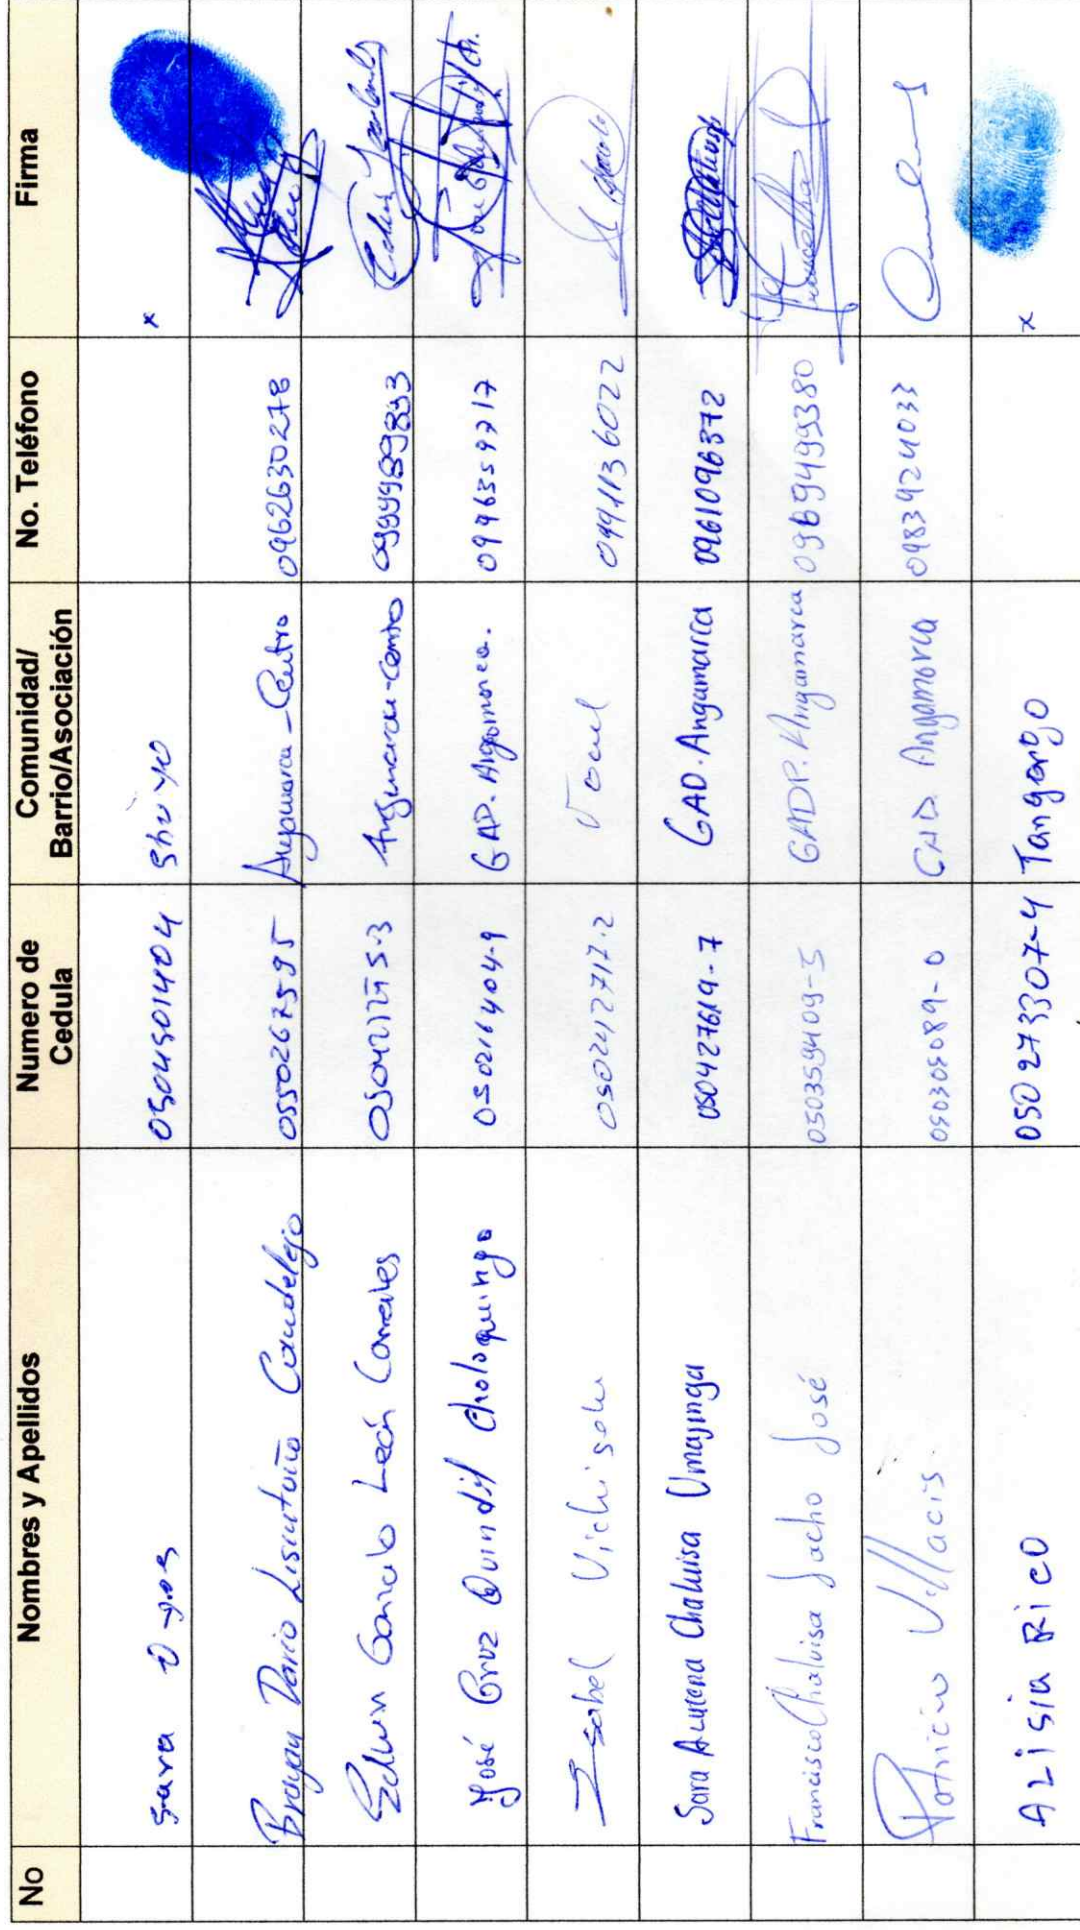 No Nombres y Apellidos Numero de Cedula Comunidad/ Barrio/Asociación No. Teléfono Firma
Sara 0504501404 Shuyo x
Brayan Dario Lisintuña Candelejo 0550267595 Angamarca-Centro 0962630278
Edwin Gonzalo León Corrales Angamarca-Centro
José Cruz Quindil Choloquinga 050216404-9 GAD. Angamarca.
Isabel Vichisela 050242717-2 0991136022
Sara Azucena Chaluisa Umajinga 050427619-7 GAD. Angamarca 0961096372
Francisco Chaluisa Jacho José 050359409-5 GADP. Angamarca 0969499380
Patricio Villacis 050305089-0 GAD. Angamarca 0983924033
ALisia Rico 050273307-4 Tangango x